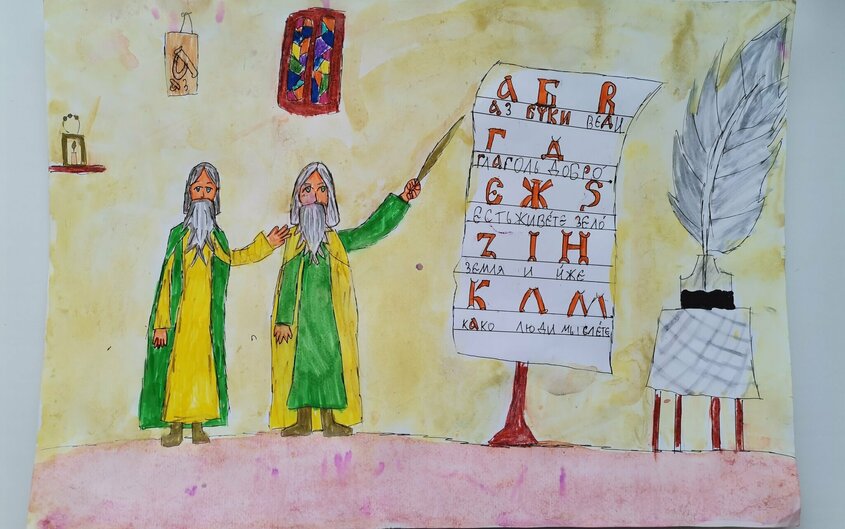 А Б В
АЗ БУКИ ВЕДИ
Г Д
ГЛАГОЛЬ ДОБРО
Є Ж Ѕ
ЕСТЬ ЖИВЕТЕ ЗЕЛО
З І Н
ЗЕМЛЯ И ИЖЕ
К Л М
КАКО ЛЮДИ МЫСЛЕТЕ